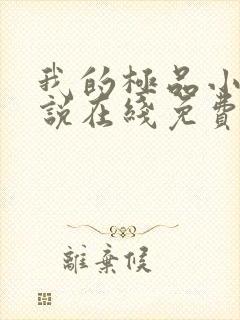 我的極品小
說在綫免費
離棄侯